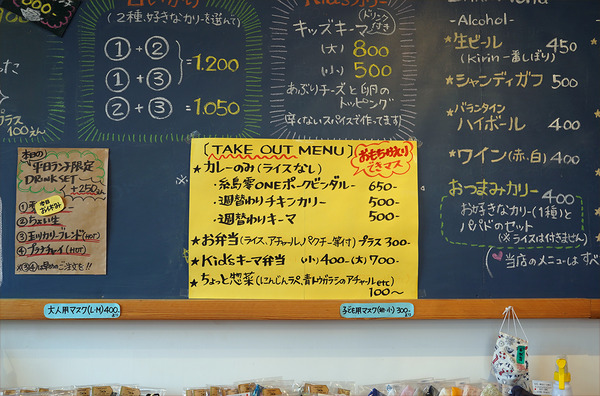 (2種、好きなカリーを選んで)
①+②
①+③
=1.200
②+③ =1.050
Kids カリー
ドリンク付き
キッズキーマ
(大) 800
(小) 500
あぶりチーズと卵の
トッピング
辛くないスパイスで作ってます
-Alcohol-
*生ビール 450
(Kirin一番しぼり)
*シャンディガフ 500
*バランタイン
ハイボール 400
*ワイン(赤、白) 400
おつまみカリー 400
お好きなカリー(1種)と
パパドのセット
(※ライスは付きません)
当店のメニューはすべ
プラス
100えん
本日の
平日ランチ限定
DRINK SET
+250
②ちょい生
④プラナチャイ(HOT)
[TAKE OUT MENU]
おもちかえり
できマス
★カレーのみ(ライスなし)
・糸島雫ONEポークビンダルー 650-
・週替わりチキンカリー 500-
・週替わりキーマ 500-
★お弁当(ライス、アチャール、パクチー等付)プラス300-
★Kid'sキーマ弁当 (小)400-(大)700-
★ちょっと惣菜(にんじんラペ、青トウガラシのアチャールetc)
100〜
大人用マスク(L・M)400
子ども用マスク(中・小)300